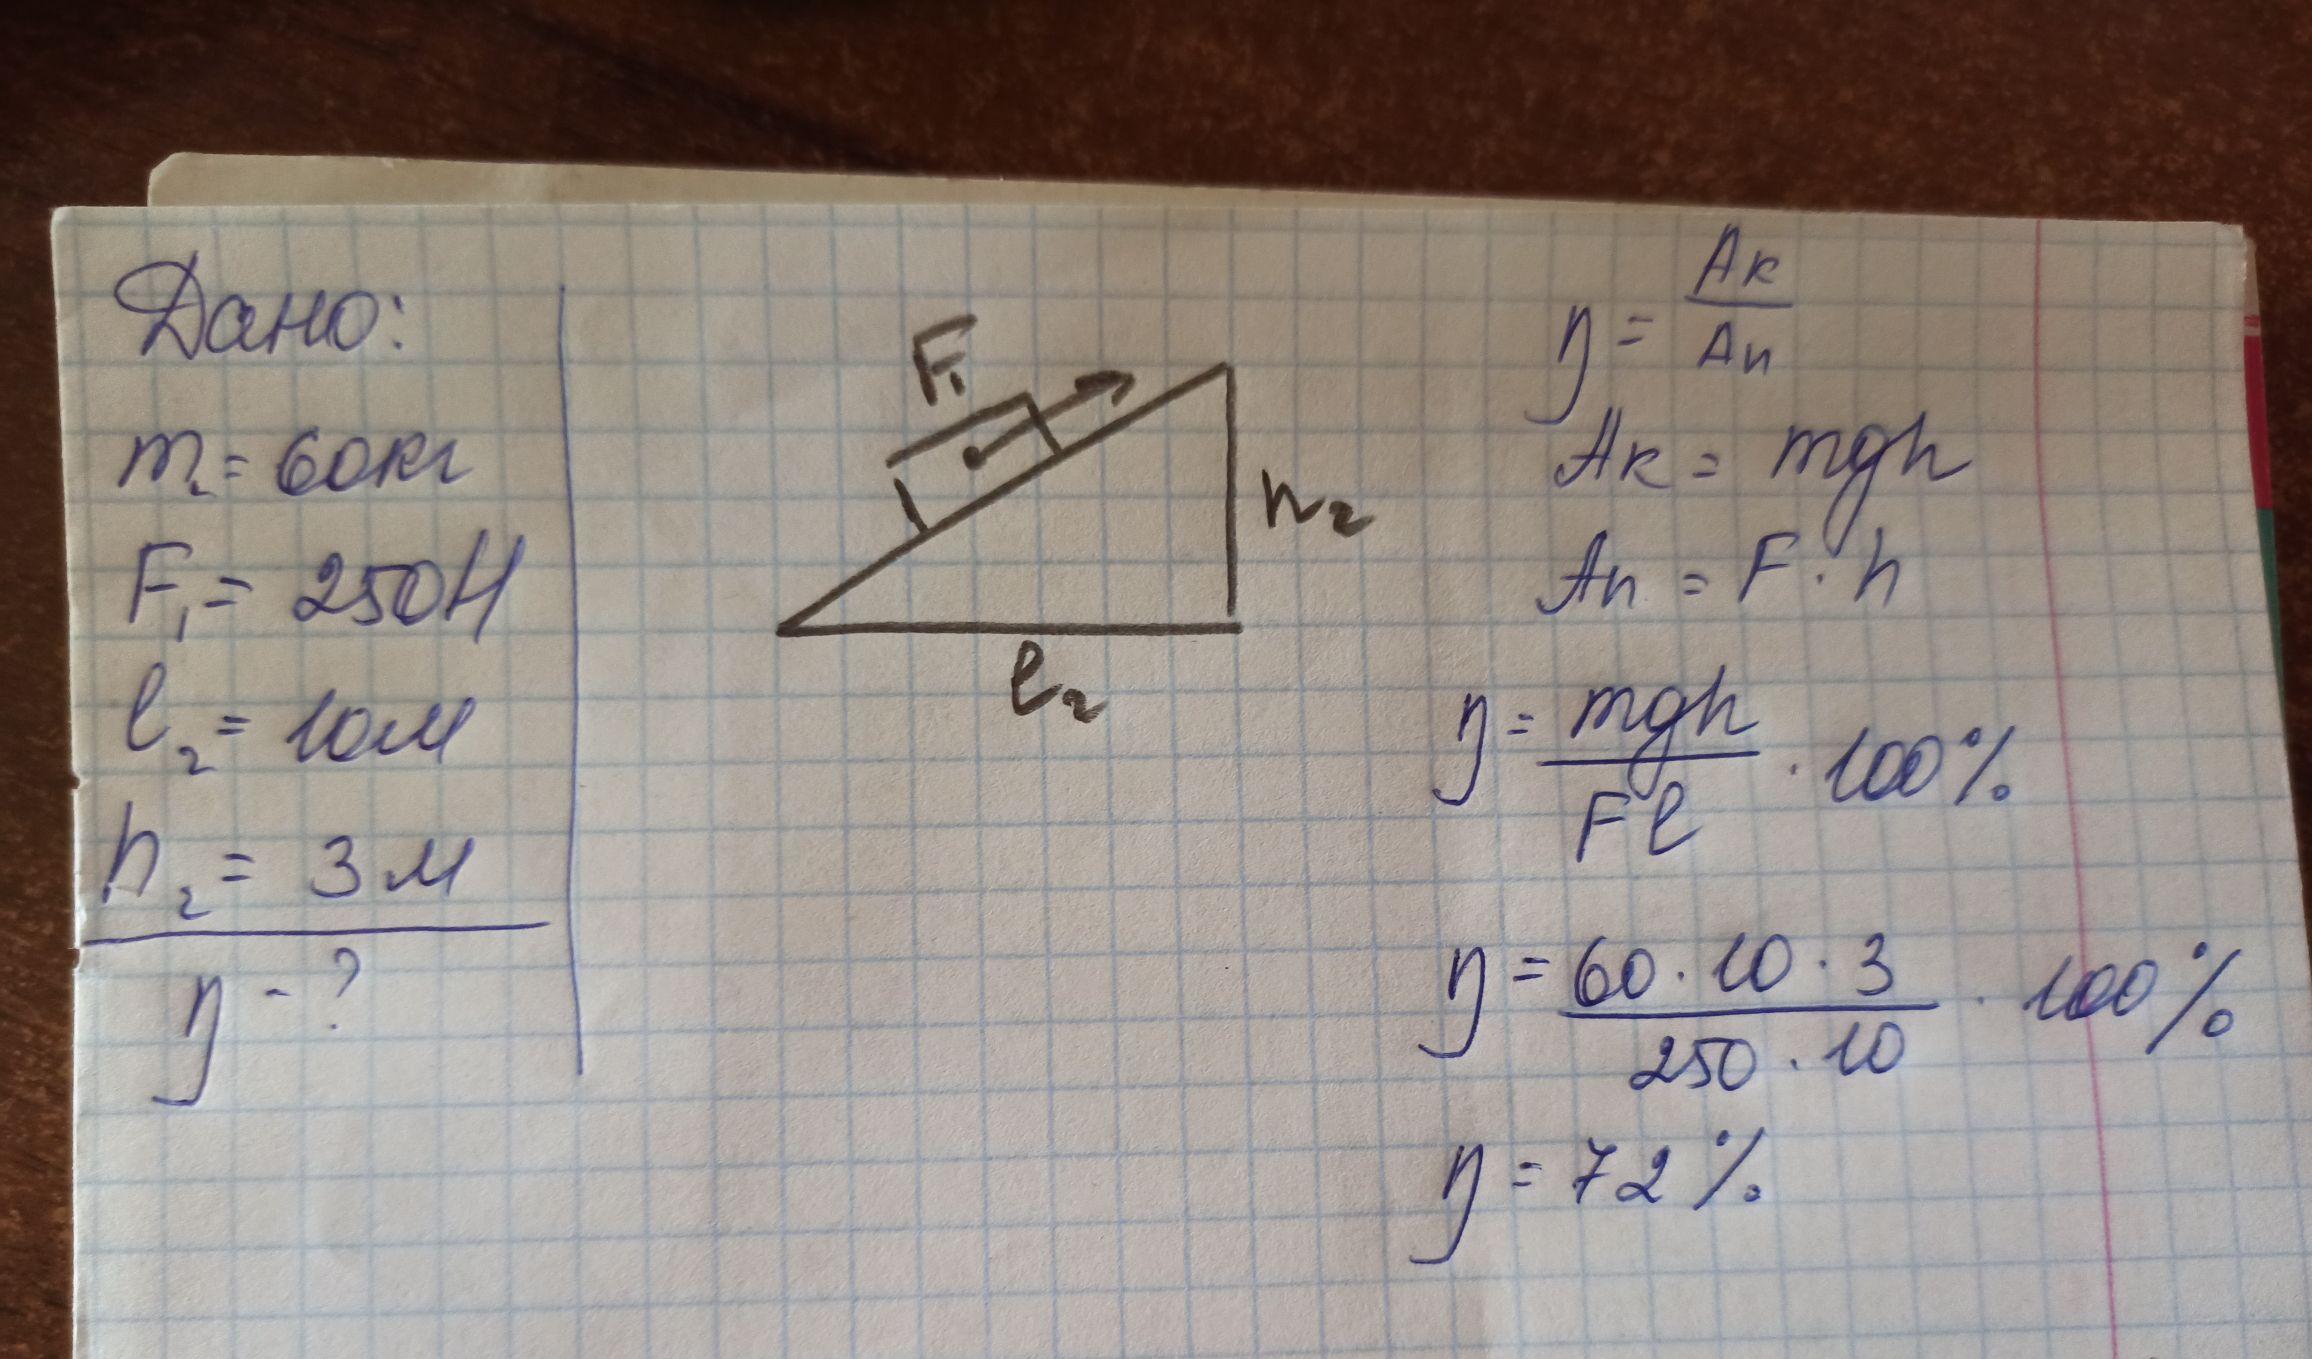 Дано:
m₂ = 60кг
F₁ = 250Н
l₂ = 10м
h₂ = 3м
η - ?
F₁
h₂
l₂
η = Ак / Ап
Ак = mgh
Ап = F · h
η = mgh / Fl · 100%
η = 60 · 10 · 3 / 250 · 10 · 100%
η = 72%